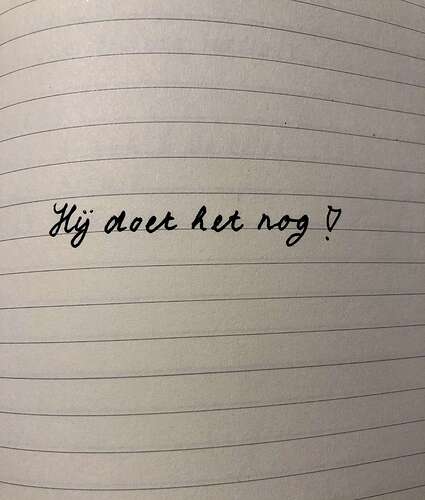 Hij doet het nog!